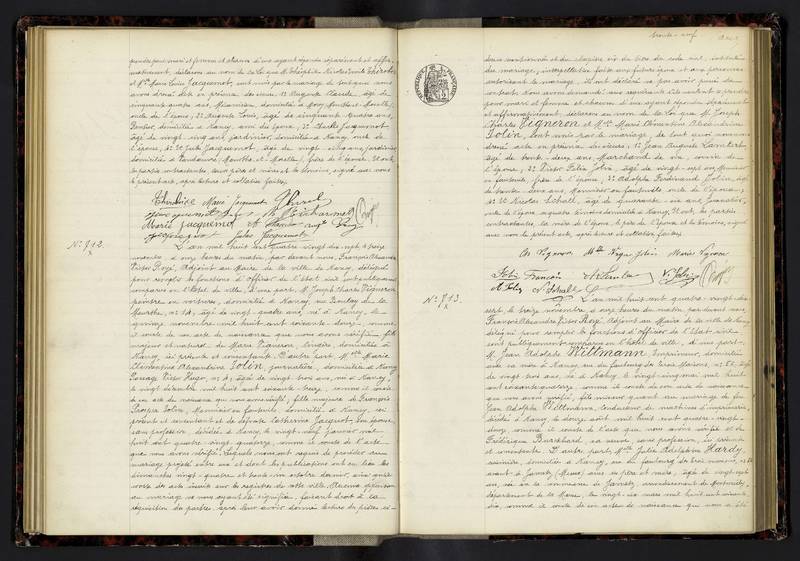 prendre pour mari et femme et chacun d'eux ayant répondu séparément et affir-
mativement, déclarons au nom de la loi que M. Théophile Nicolas Emile Thérotin
et Mlle Marie Louise Jacquemot, sont unis par le mariage de tout quoi nous
avons dressé acte en présence des sieurs: 1° Auguste Claude, âgé de
cinquante quatre ans, domicilié à Meurthe et Moselle,
oncle de l'époux; 2° Auguste Louis, âgé de cinquante quatre ans,
domicilié à Nancy, ami du époux; 3° Charles Jacquemot
âgé de vingt cinq ans jardinier, domicilié à Nancy oncle de
l'épouse; 4° et Jules Jacquemot, âgé de vingt cinq ans, jardinier
domicilié à Vandœuvre (Meurthe et Moselle), frère de l'épouse. Et ont,
les parties contractantes, leurs pères et mères et les témoins, signé avec nous
le présent acte, après lecture et collation faites.
Marie Jacquemot
Marie Jacquemot
Jules Jacquemot
N° 812.
L'an mil huit cent quatre vingt dix sept le treize
novembre à onze heures du matin, par devant nous, François Alexandre
Victor Rozé, Adjoint au Maire de la ville de Nancy, délégué
pour remplir les fonctions d'Officier de l'Etat civil, ont publiquement
comparu en l'hôtel de ville: d'une part, M. Joseph Charles Vigneron
peintre en voitures, domicilié à Nancy, rue
n° 14, âgé de vingt quatre ans, né à Nancy, le
quinze novembre mil huit cent soixante douze, comme
il conste de son acte de naissance que nous avons vérifié, fils
majeur et naturel de Marie Vigneron, lingère, domiciliée à
Nancy, ici présente et consentante. D'autre part, Mlle Marie
Clémentine Alexandrine Jolin, journalière, domiciliée à Nancy
Passage Victor Hugo, n° 3, âgée de vingt trois ans, née à Nancy,
le vingt décembre mil huit cent soixante treize, comme il conste
de son acte de naissance que nous avons vérifié, fille majeure de François
Prosper Jolin, Menuisier en fauteuils domicilié à Nancy, ici
présent et consentant et de défunte Catherine Jacquot, son épouse
sans profession, décédée à Nancy, le vingt neuf janvier mil
huit cent quatre vingt quatorze, comme il conste de l'acte
que nous avons vérifié. Lesquels nous ont requis de procéder au
mariage projeté entre eux et dont les publications ont eu lieu les
dimanches vingt quatre et trente un octobre dernier, ainsi qu'il
conste des actes inscrits sur les registres de cette ville. Aucune opposition
au mariage ne nous ayant été signifiée, faisant droit à la
réquisition des parties, après leur avoir donné lecture des pièces ci-
trente-neuf
dessus mentionnées et du chapitre six du titre du code civil, intitulé
du mariage, interpellation faite aux futurs époux et aux personnes
autorisant le mariage, ils ont déclaré ne pas avoir passé de
contrat. Nous avons demandé aux requérants s'ils veulent se prendre
pour mari et femme et chacun d'eux ayant répondu séparément
et affirmativement, déclarons au nom de la loi que M. Joseph
Charles Vigneron et Mlle Marie Clémentine Alexandrine
Jolin, sont unis par le mariage, de tout quoi nous avons
dressé acte en présence des sieurs; 1° Jean Auguste Lambert
âgé de trente deux ans, Marchand de vin, cousin de
l'époux; 2° Victor Félix Jolin, âgé de vingt sept ans Menuisier
en fauteuils, frère de l'épouse; 3° Adolphe Ferdinand Jolin, âgé
de trente cinq ans, Menuisier en fauteuils oncle de l'épouse;
4° et Nicolas Schall, âgé de quarante six ans
oncle de l'époux, ces quatre témoins domiciliés à Nancy. Et ont, les parties
contractantes, la mère de l'époux, le père de l'épouse et les témoins, signé
avec nous le présent acte, après lecture et collation faites.
Ch Vigneron Marie Vigneron
Jolin François V. Jolin
A. Jolin N. Schall
N° 813.
L'an mil huit cent quatre-vingt-dix
sept, le treize novembre à onze heures du matin, par devant nous,
François Alexandre Victor Rozé, Adjoint au Maire de la ville de Nancy
délégué pour remplir les fonctions d'Officier de l'Etat civil
ont publiquement comparu en l'hôtel de ville, d'une part,
M. Jean Adolphe Wittmann, Imprimeur, domicilié
avec sa mère à Nancy, rue du faubourg des trois Maisons, n° 52, âgé
de vingt trois ans, né à Nancy, le vingt cinq mai mil huit
cent soixante quatorze, comme il conste de son acte de naissance
que nous avons vérifié, fils mineur quant au mariage de feu
Jean Adolphe Wittmann, conducteur de machines d'imprimerie,
décédé à Nancy, le douze août mil huit cent quatre-vingt-
douze, comme il conste de l'acte que nous avons vérifié et de
Frédérique Burckhard sa veuve, sans profession, ici présente
et consentante. D'autre part, Mlle Julie Adelphine Hardy
cuisinière, domiciliée à Nancy, rue du faubourg des trois maisons, n° 52
avant à Jametz (Meuse) avec ses père et mère, âgée de vingt sept
ans, née en la commune de Jametz, arrondissement de Montmédy,
département de la Meuse, le vingt six mars mil huit cent soixante
dix, comme il conste de son acte de naissance que nous a été